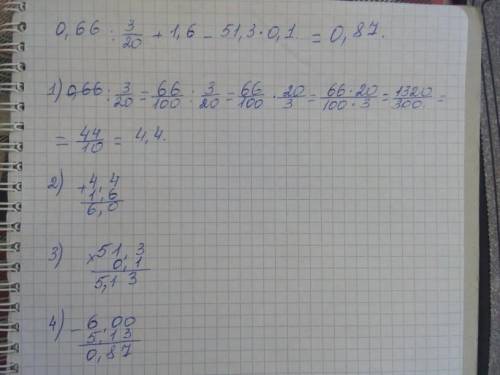 0,66 : 3/20 + 1,6 - 51,3 · 0,1 = 0,87.
1) 0,66 : 3/20 = 66/100 : 3/20 = 66/100 · 20/3 = 66·20/100·3 = 1320/300 =
= 44/10 = 4,4.
2) + 4,4
1,6
6,0
3) × 51,3
0,1
5,13
4) - 6,00
5,13
0,87